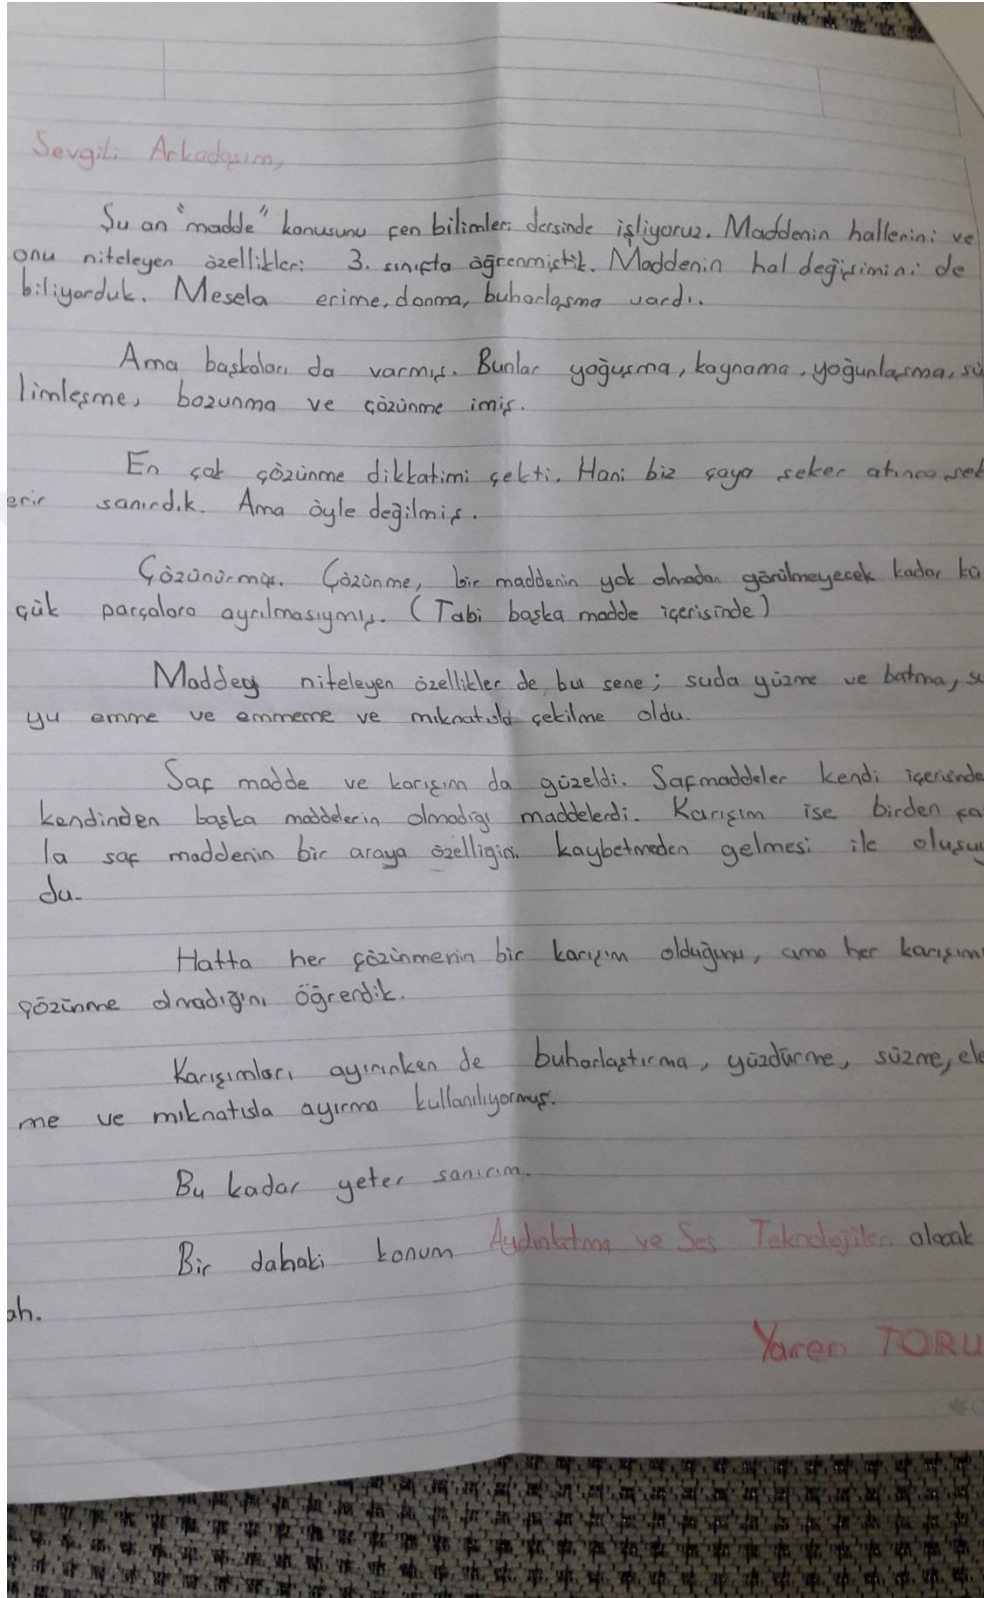 Sevgili Arkadaşım,
Şu an "madde" konusunu fen bilimleri dersinde işliyoruz. Maddenin hallerini ve
onu niteleyen özellikleri 3. sınıfta öğrenmiştik. Maddenin hal değişimini de
biliyorduk. Mesela erime, donma, buharlaşma vardı.
Ama başkaları da varmış. Bunlar yoğuşma, kaynama, yoğunlaşma, sü
limleşme, bozunma ve çözünme imiş.
En çok çözünme dikkatimi çekti. Hani biz çaya şeker atınca şek
erir sanırdık. Ama öyle değilmiş.
Çözünürmüş. Çözünme, bir maddenin yok olmadan görülmeyecek kadar kü
çük parçalara ayrılmasıymış. (Tabi başka madde içerisinde)
Maddey niteleyen özellikler de bu sene; suda yüzme ve batma, su
yu emme ve emmeme ve mıknatısla çekilme oldu.
Saf madde ve karışım da güzeldi. Saf maddeler kendi içerisinde
kendinden başka maddelerin olmadığı maddelerdi. Karışım ise birden fa
la saf maddenin bir araya özelliğini kaybetmeden gelmesi ile oluşuy
du.
Hatta her çözünmenin bir karışım olduğunu, ama her karışım
çözünme olmadığını öğrendik.
Karışımları ayırırken de buharlaştırma, yüzdürme, süzme, ele
me ve mıknatısla ayırma kullanılıyormuş.
Bu kadar yeter sanırım.
Bir dahaki konum Aydınlatma ve Ses Teknolojileri olacak
ah.
Yaren TORU